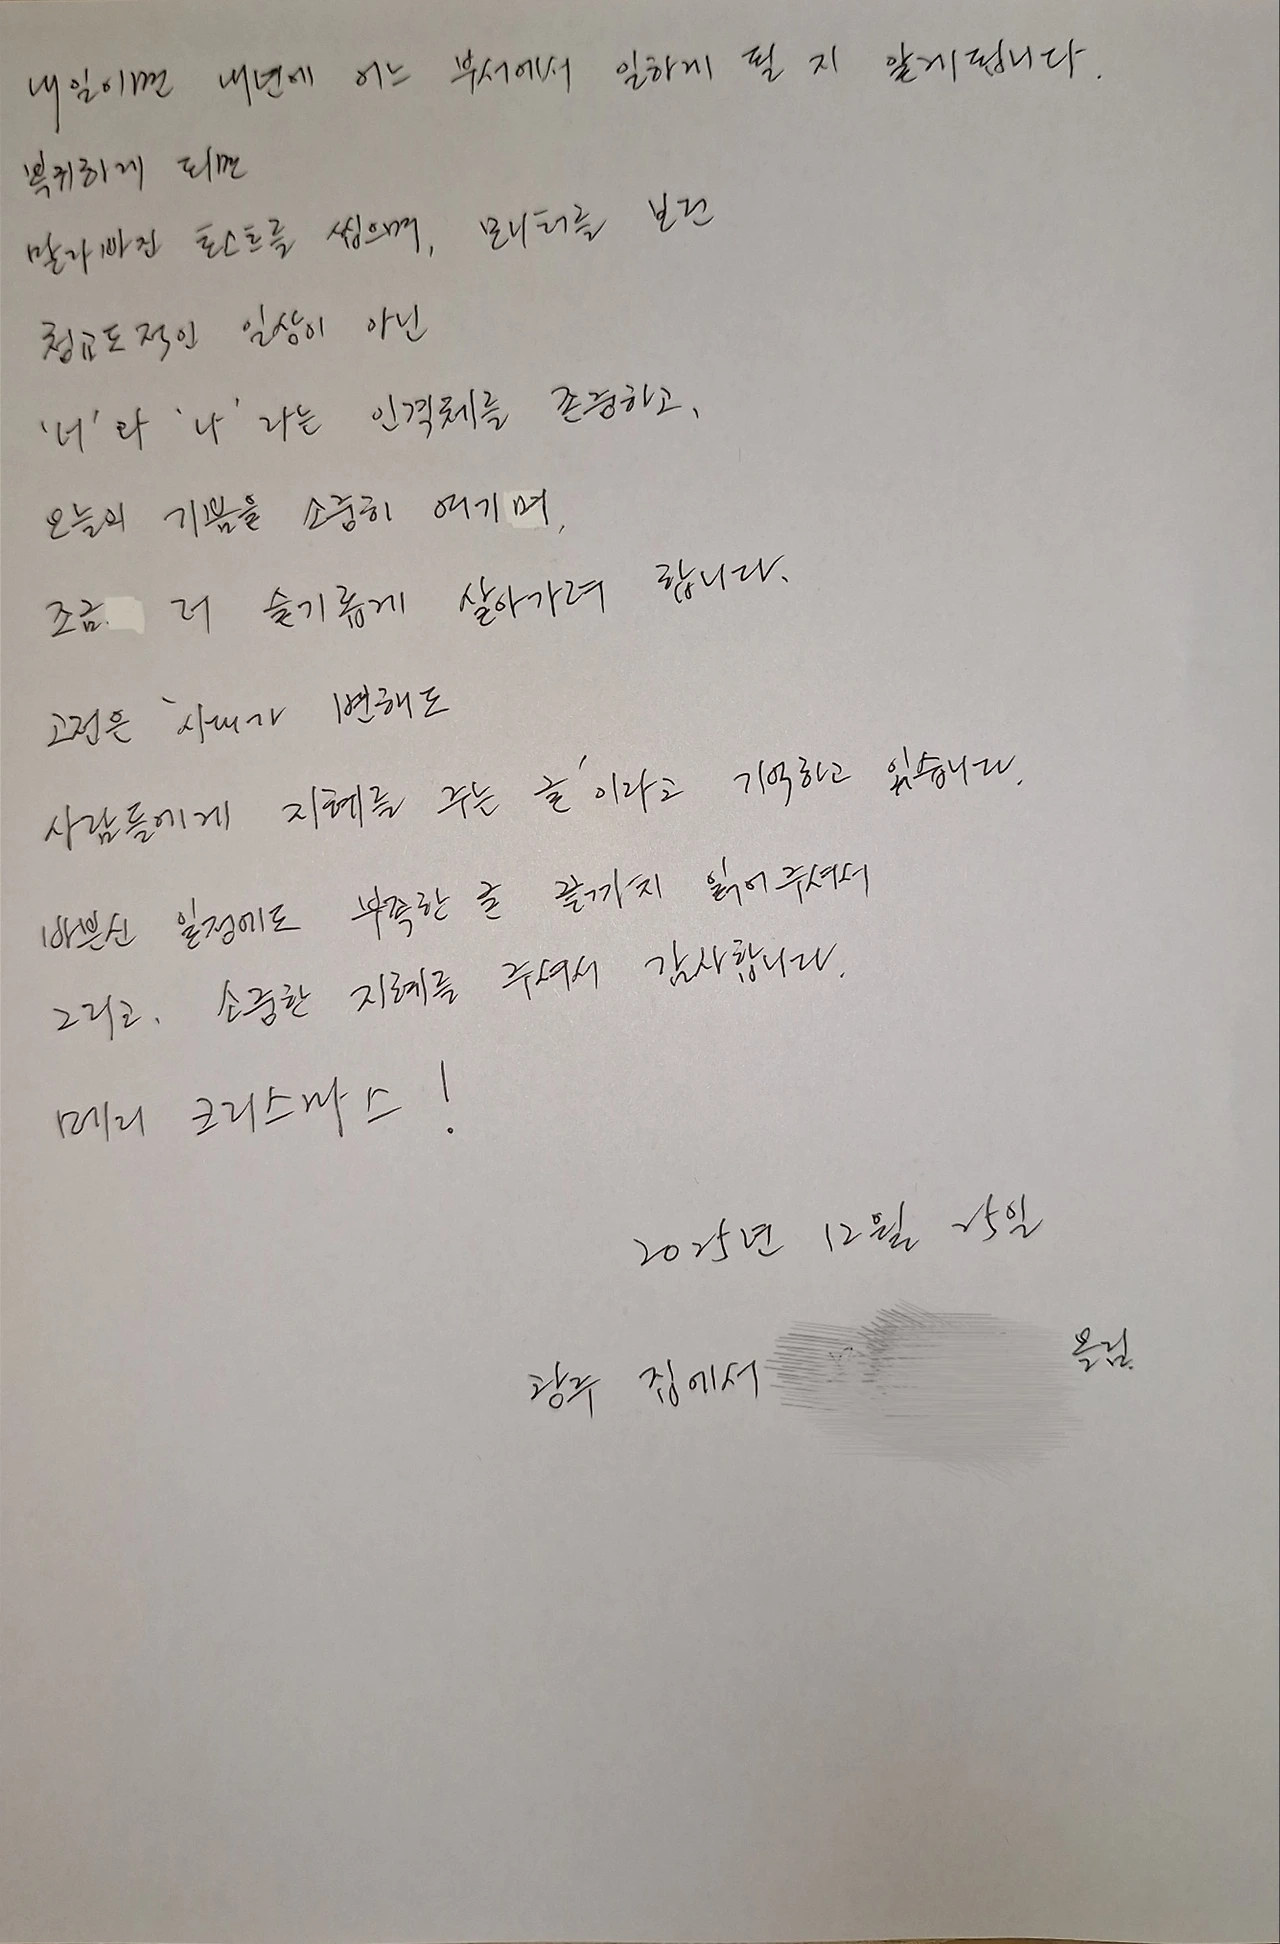 내일이면 내년에 어느 부서에서 일하게 될 지 알게됩니다.
복귀하게 되면
말라빠진 토스트를 씹으며, 모니터를 보던
청교도적인 일상이 아닌
'너'와 '나'라는 인격체를 존중하고,
오늘의 기쁨을 소중히 여기며,
조금 더 슬기롭게 살아가려 합니다.
고전은 '시대가 변해도
사람들에게 지혜를 주는 글'이라고 기억하고 있습니다.
바쁘신 일정에도 부족한 글 끝까지 읽어주셔서
그리고, 소중한 지혜를 주셔서 감사합니다.
메리 크리스마스!
2025년 12월 25일
광주 집에서 올림.